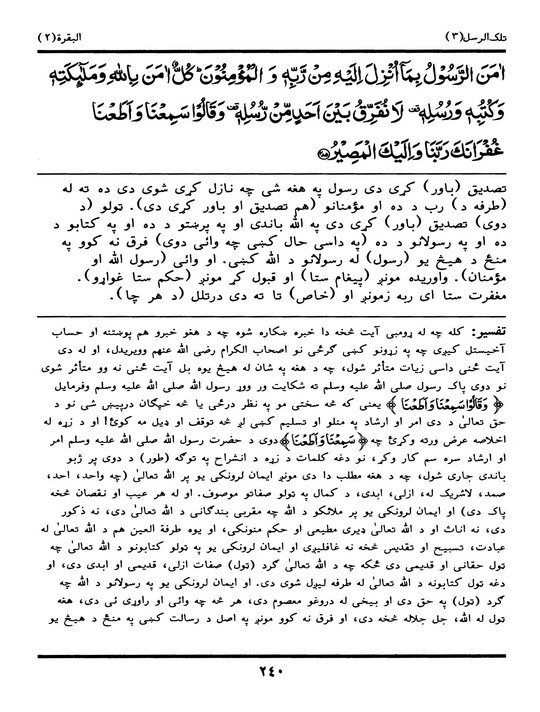 تلک الرسل (٣) البقرة (٢)
اٰمَنَ الرَّسُوْلُ بِمَاۤ اُنْزِلَ اِلَيْهِ مِنْ رَّبِّهٖ وَ الْمُؤْمِنُوْنَ ؕ كُلٌّ اٰمَنَ بِاللّٰهِ وَمَلٰٓئِكَتِهٖ
وَكُتُبِهٖ وَرُسُلِهٖ ۟ لَا نُفَرِّقُ بَيْنَ اَحَدٍ مِّنْ رُّسُلِهٖ ۟ وَقَالُوْا سَمِعْنَا وَاَطَعْنَا
غُفْرَانَكَ رَبَّنَا وَاِلَيْكَ الْمَصِيْرُ ﴿٢٨٥﴾
تصدیق (باور) کړی دی رسول په هغه شی چه نازل کړی شوی دی ده ته له
(طرفه د) رب د ده او مؤمنانو (هم تصدیق او باور کړی دی). تولو (د
دوی) تصدیق (باور) کړی دی په الله باندی او په پرښتو د ده او په کتابو د
ده او په رسولانو د ده (په داسی حال کښی چه وائی دوی) فرق نه کوو په
منځ د هیڅ یو (رسول) له رسولانو د الله کښی. او وائی (رسول الله او
مؤمنان). واوریده مونږ (پیغام ستا) او قبول کړ مونږ (حکم ستا غواړو).
مغفرت ستا ای ربه زمونږ او (خاص) تا ته دی درتلل (د هر چا).
تفسیر: کله چه له ړومبی آیت څخه دا خبره ښکاره شوه چه د هغو خبرو هم پوښتنه او حساب
آخیستل کیږی چه په زړونو کښی گرځی نو اصحاب الکرام رضی الله عنهم وویریدل، او له دی
آیت څخنی داسی زیات متأثر شول، چه د هغه په شان له هیڅ یوه بل آیت څخنی نه وو متأثر شوی
نو دوی پاک رسول صلی الله علیه وسلم ته شکایت ور ووړ رسول الله صلی الله علیه وسلم وفرمایل
﴿ وَقَالُوْا سَمِعْنَا وَاَطَعْنَا ﴾ یعنی که څه سختی مو په نظر درځی یا څه خپگان درپیښی شی نو د
حق تعالیٰ د دی امر او ارشاد په منلو او تسلیم کښی لږ څه توقف او ډیل مه کوئ! او د زړه له
اخلاصه عرض ورته وکړئ چه ﴿ سَمِعْنَا وَاَطَعْنَا ﴾ دوی د حضرت رسول الله صلی الله علیه وسلم امر
او ارشاد سره سم کار وکړ، نو دغه کلمات د زړه د انشراح په توگه (طور) د دوی پر ژبو
باندی جاری شول، چه د هغه مطلب دا دی مونږ ایمان لرونکی یو پر الله تعالیٰ (چه واحد، احد،
صمد، لاشریک له، ازلی، ابدی، د کمال په تولو صفاتو موصوف. او له هر عیب او نقصان څخه
پاک دی) او ایمان لرونکی یو پر ملائکو د الله چه مقربی بندگانی د الله تعالیٰ دی، نه ذکور
دی، نه اناث او د الله تعالیٰ ډیری مطیعی او حکم منونکی، او یوه طرفة العین هم د الله تعالیٰ له
عبادت، تسبیح او تقدیس څخه نه غافلیږی او ایمان لرونکی یو په تولو کتابونو د الله تعالیٰ چه
تول حقانی او قدیمی دی ځکه چه د الله تعالیٰ گرد (تول) صفات ازلی، قدیمی او ابدی دی، او
دغه تول کتابونه د الله تعالیٰ له طرفه لیږل شوی دی. او ایمان لرونکی یو په رسولانو د الله چه
گرد (تول) په حق دی او بیخی له دروغو معصوم دی، هر څه چه وائی او راوړی ئی دی، هغه
تول له الله، جل جلاله څخه دی، او فرق نه کوو مونږ په اصل د رسالت کښی په منځ د هیڅ یو
٢٤٠